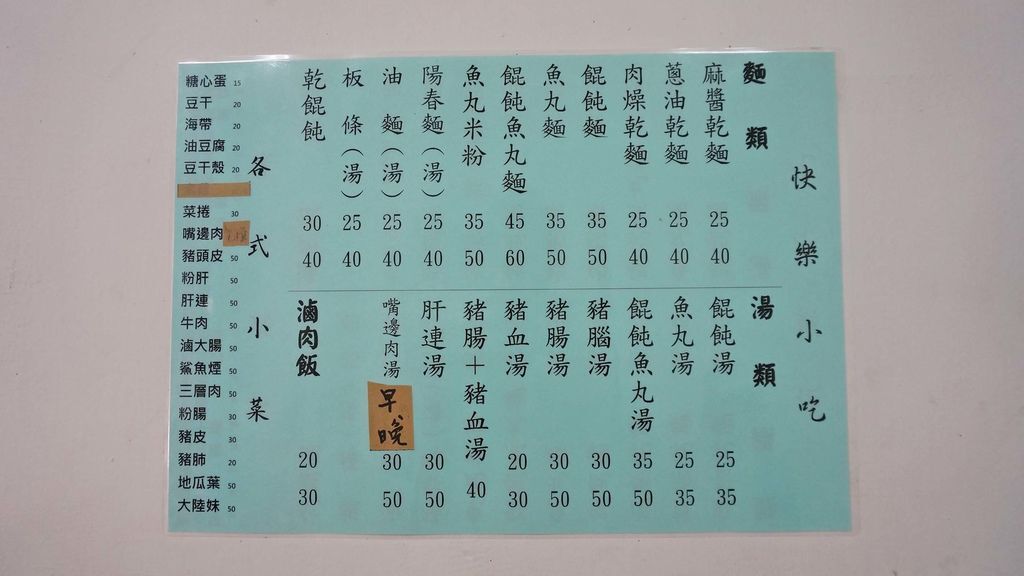 快樂小吃
麵類
麻醬乾麵 25 40
蔥油乾麵 25 40
肉燥乾麵 25 40
餛飩麵 35 50
魚丸麵 35 50
餛飩魚丸麵 45 60
魚丸米粉 35 50
陽春麵(湯) 25 40
油麵(湯) 25 40
板條(湯) 25 40
乾餛飩 30 40
湯類
餛飩湯 25 35
魚丸湯 25 35
餛飩魚丸湯 35 50
豬腦湯 30 50
豬腸湯 30 50
豬血湯 20 30
豬腸+豬血湯 40
肝連湯 30 50
嘴邊肉湯 早晚 30 50
滷肉飯 20 30
各式小菜
糖心蛋 15
豆干 20
海帶 20
油豆腐 20
豆干殼 20
菜捲 30
嘴邊肉
豬頭皮 50
粉肝 50
肝連 50
牛肉 50
滷大腸 50
鯊魚煙 50
三層肉 50
粉腸 30
豬皮 30
豬肺 20
地瓜葉 50
大陸妹 50